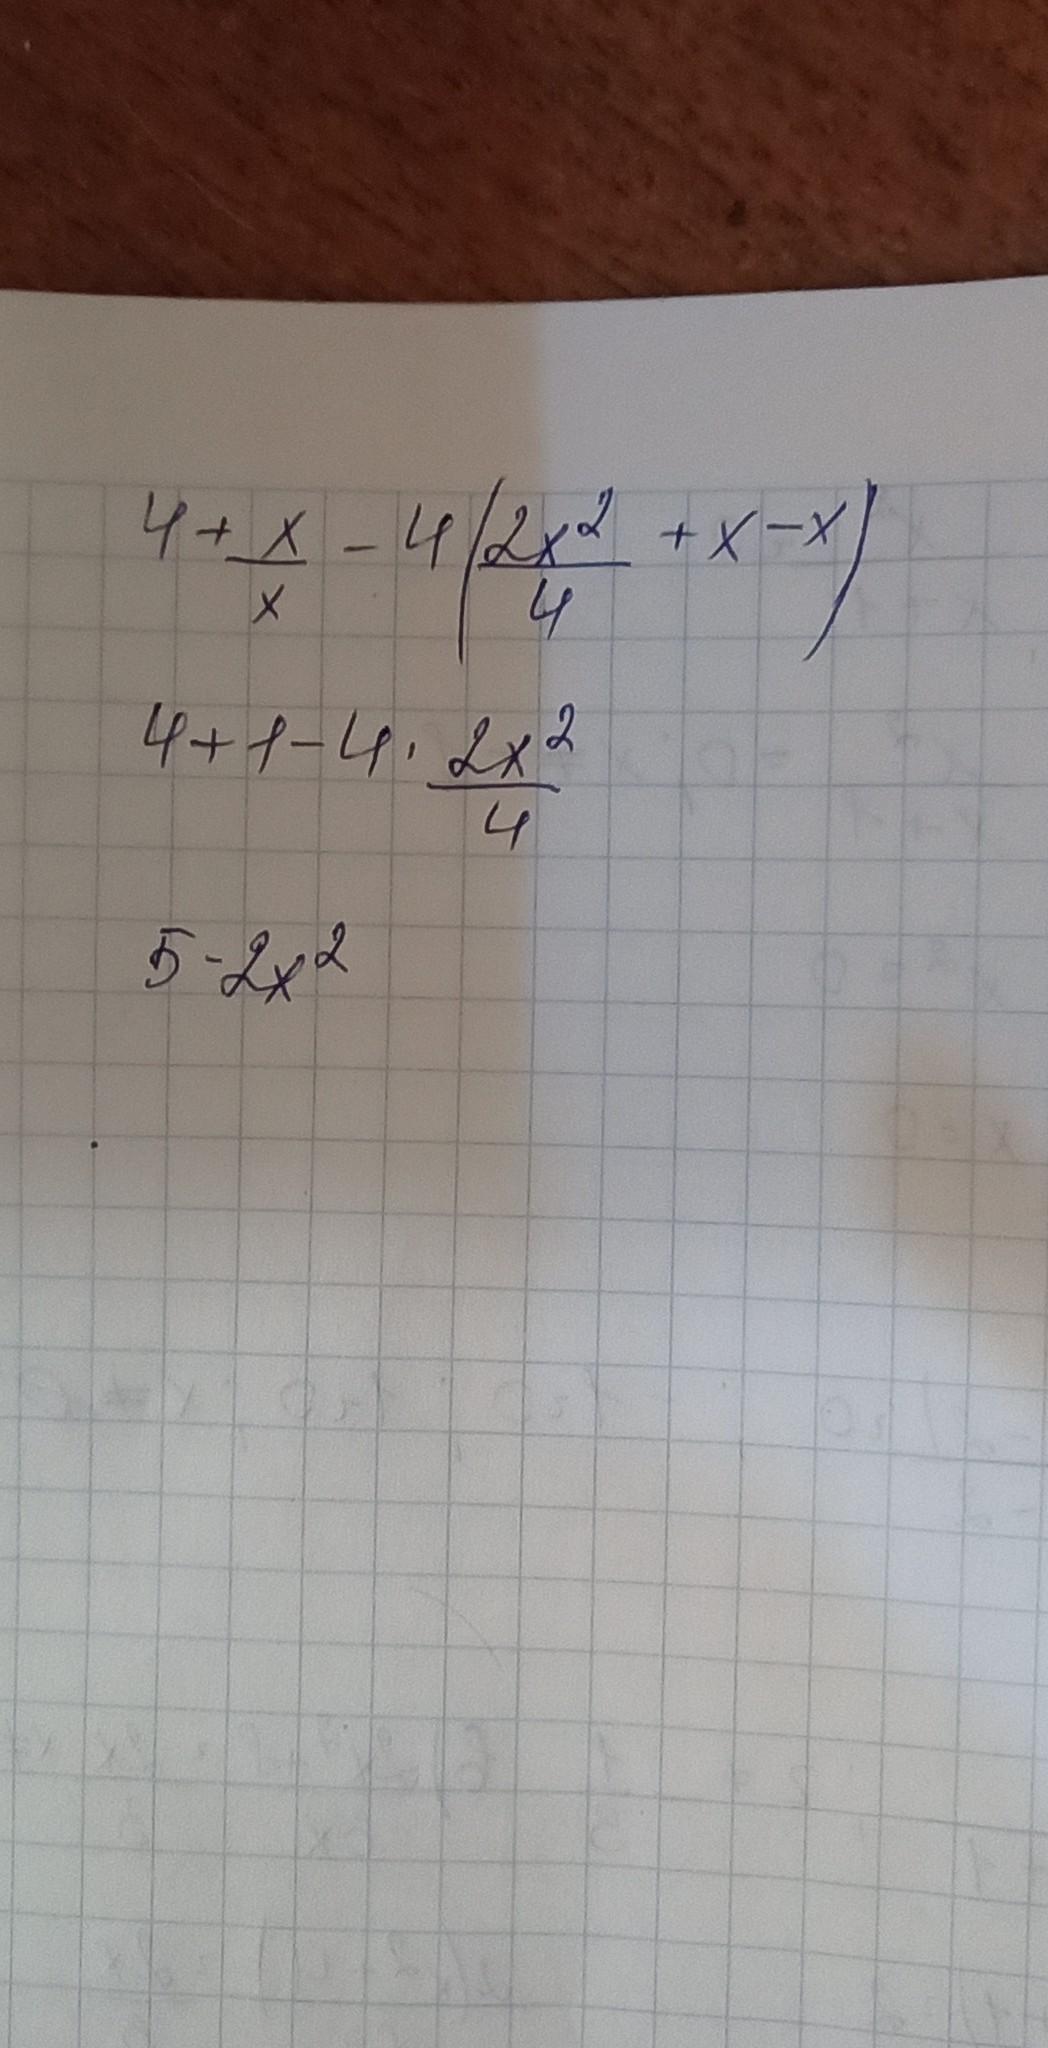 4 + x/x - 4(2x²/4 + x - x)
4 + 1 - 4 · 2x²/4
5 - 2x²